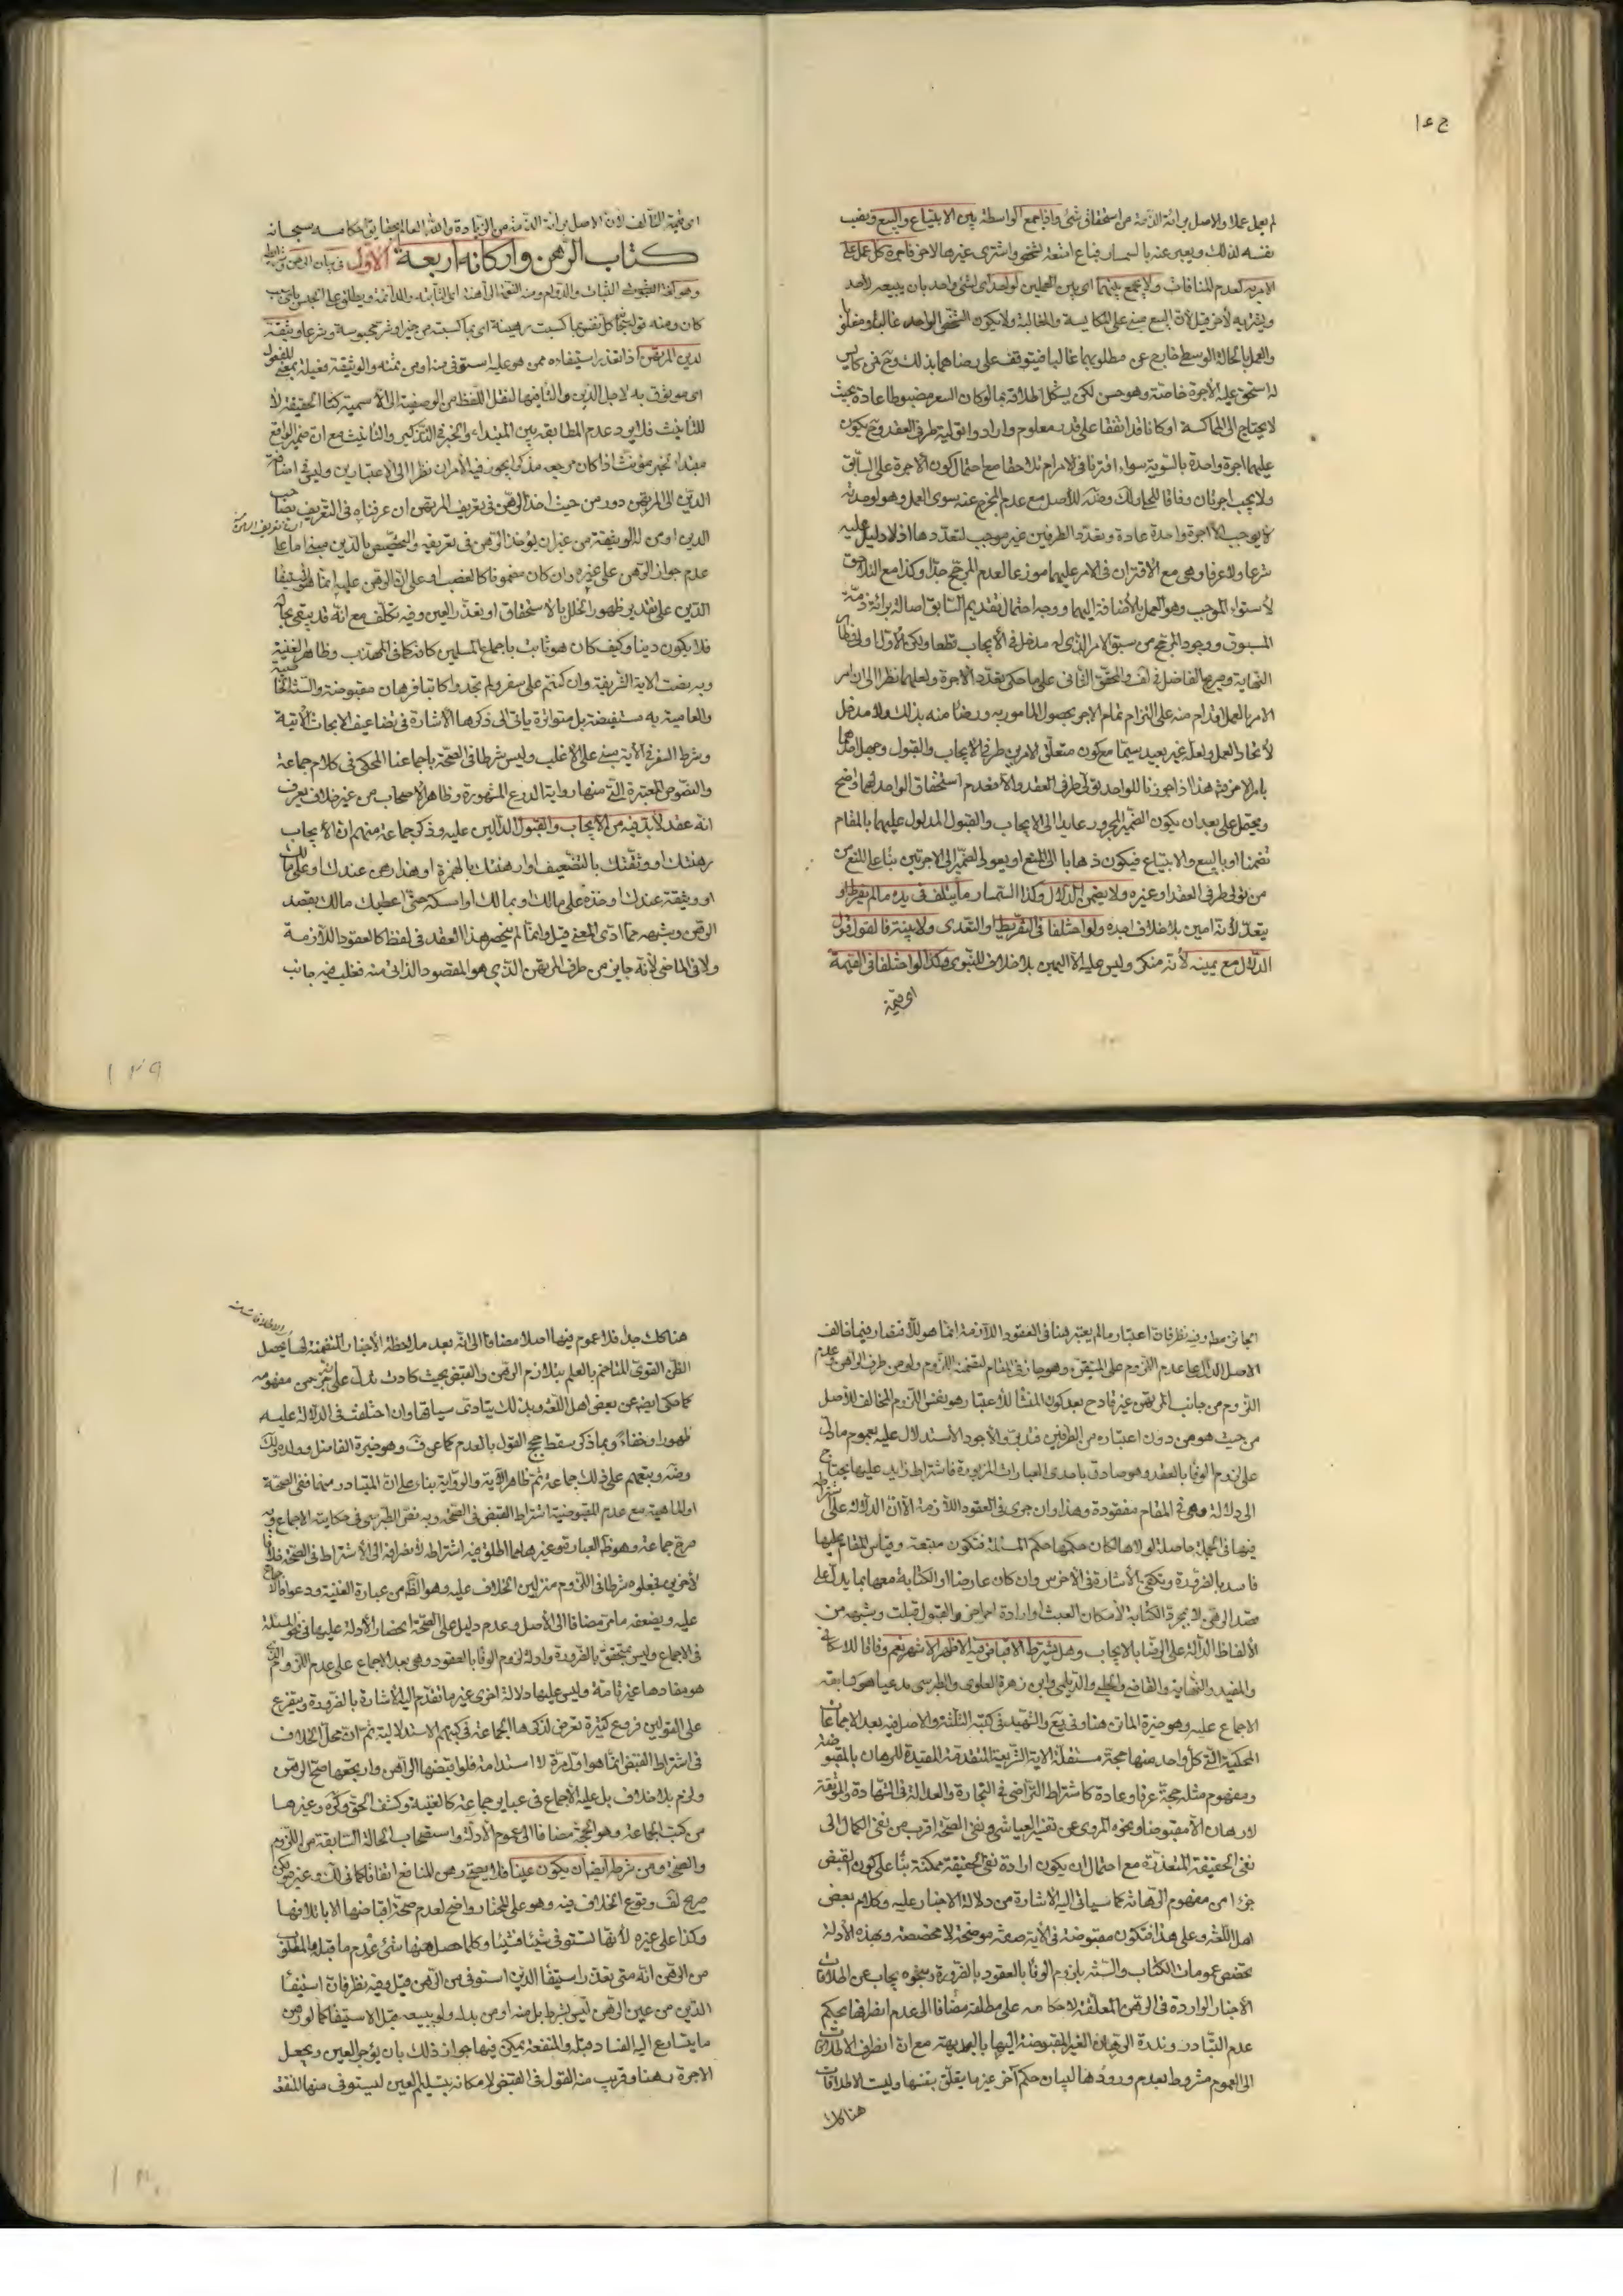 لم يعمل عملا والاصل برائة الذمة من استحقاق شئ واذا جمع الواسطة بين الابتياع والبيع ونصب
نفسه لذلك ويعبر عنه بالسمسار فباع امتعة لشخص واشترى غيرها لاخر فاجرة كل عمل على
الامر به لعدم المنافات ولا يجمع بينهما اى بين العملين لواحد اى لشئ واحد بان يبيعه لاحد
ويشتريه لاخر قيل لان البيع مبنى على المكايسة والمغالبة ولا يكون الشخص الواحد غالبا ومغلوبا
والعمل بالحالة الوسط خارج عن مطلوبهما غالبا فيتوقف على رضاهما بذلك وح فمن كايس
له استحق عليه الاجرة خاصة وهو حسن لكن يشكل اطلاقه بما لو كان السعر مضبوطا عادة بحيث
لا يحتاج الى المماكسة او كانا قد اتفقا على قدر معلوم وارادوا توليه طرفى العقد وح يكون
عليهما اجرة واحدة بالسوية سواء اقترنا فى الامر ام تلاحقا مع احتمال كون الاجرة على السابق
ولا يجب اجرتان وفاقا للك وضه للاصل مع عدم المخرج عنه سوى العمل وهو لوحدته
لا يوجب الا اجرة واحدة عادة وتعدد الطرفين غير موجب لتعددها اذ لا دليل عليه
شرعا ولا عرفا وهى مع الاقتران فى الامر عليهما موزعا لعدم المرجح جدا وكذا مع التلاحق
لاستواء الموجب وهو العمل بالاضافة اليهما ووجه احتمال تقديم السابق اصالة برائة ذمة
المسبوق ووجود المرجح من سبق الامر الذى له مدخل فى الايجاب قطعا ولكن الاول اولى وظ
النهاية وصريح الفاضل فى لف والمحقق الثانى على ما حكى تعدد الاجرة ولعلهما نظرا الى ان امر
الامر بالعمل اقدام منه على التزام تمام الاجر بحصول المامور به ورضا منه بذلك ولا مدخل
لاتحاد العمل ولعله غير بعيد سيما مع كون متعلق الامرين طرفى الايجاب والقبول وجهل احدهما
بامر الاخر ثم هذا اذا جوزنا للواحد تولى طرفى العقد والا فعدم استحقاق الواحد لهما واضح
ويحتمل على بعد ان يكون الضمير المجرور عايدا الى الايجاب والقبول المدلول عليهما بالمقام
تضمنا او بالبيع والابتياع فيكون ذهابا الى المنع او يعود الضمير الى الاجرتين بناء على المنع من
من تولى طرفى العقد او غيره ولا يضمن الدلال وكذا السمسار ما يتلف فى يده ما لم يفرط او
يتعد لانه امين بلا خلاف اجده ولو اختلفا فى التفريط او التعدى ولا بينة فالقول قول
الدلال مع يمينه لانه منكر وليس عليه الا اليمين بلا خلاف للنبوى وكذا لو اختلفا فى القيمة
اى قيمة
اى قيمة التالف لان الاصل برائة الذمة من الزيادة والله العالم بحقايق احكامه سبحانه
كتاب الرهن واركانه اربعة الاول فى بيان الرهن وشرايطه
وهو لغة الثبوت الثبات والدوام ومنه النعمة الراهنة اى الثابتة والدائمة ويطلق على الحبس باى سبب
كان ومنه قوله تعالى كل نفس بما كسبت رهينة اى بما كسبت من خير او شر محبوسة وشرعا وثيقة
لدين المرتهن اذا تعذر استيفاءه ممن هو عليه استوفى منها او من ثمنه والوثيقة فعيلة بمعنى المفعول
اى موثوق به لاجل الدين والتاء فيها لنقل اللفظ من الوصفية الى الاسمية كتاء الحقيقة لا
للتانيث فلا يرد عدم المطابقة بين المبتداء والخبر فى التذكير والتانيث مع ان ضمير الواقع
مبتدا لخبر مؤنث اذا كان مرجعه مذكرا يجوز فيه الامران نظرا الى الاعتبارين وليس فى اضافة
الدين الى المرتهن دور من حيث اخذ الرهن فى تعريف المرتهن ان عرفناه فى التعريف بصاحب
الدين او من له الوثيقة من غير ان يؤخذ الرهن فى تعريفه والتخصيص بالدين مبنى اما على
عدم جواز الرهن على غيره وان كان مضمونا كالغصب او على ان الرهن عليه انما هو لاستيفاء
الدين على تقدير ظهور الخلل بالاستحقاق او تعذر العين وفيه تكلف مع انه قد يبقى بحاله
فلا يكون دينا وكيف كان هو ثابت باجماع المسلمين كافة كما فى المهذب وظاهر الغنية
وبه نصت الاية الشريفة وان كنتم على سفر ولم تجدوا كاتبا فرهان مقبوضة والسنة الخاصية
والعامية به مستفيضة بل متواترة ياتى الى ذكرها الاشارة فى تضاعيف الابحاث الاتية
وشرط السفر فى الاية مبنى على الاغلب وليس شرطا فى الصحة باجماعنا المحكى فى كلام جماعة
والنصوص المعتبرة التى منها رواية الدرع المشهورة وظاهر الاصحاب من غير خلاف يعرف
انه عقد لا بد فيه من الايجاب والقبول الدالين عليه وذكر جماعة منهم ان الايجاب
رهنتك او وثقتك بالتضعيف او ارهنتك بالهمزة او هذا رهن عندك او على مالك
او وثيقة عندك او خذه على مالك او بمالك او امسكه حتى اعطيك مالك بقصد
الرهن وشبهه مما ادى المعنى قيل وانما لم ينحصر هذا العقد فى لفظ كالعقود اللازمة
ولا فى الماضى لانه جايز من طرف المرتهن الذى هو المقصود الذاتى منه فغلب فيه جانب
الجايز مط وفيه نظر فان اعتبار ما لم يعتبر هنا فى العقود اللازمة انما هو للاقتصار فيما خالف
الاصل الدال على عدم اللزوم على المتيقن وهو جار فى المقام لتضمنه اللزوم ولو من طرف الراهن وعدم
اللزوم من جانب المرتهن غير قادح بعد كون المنشأ للاعتبار هو نفس اللزوم المخالف للاصل
من حيث هو هو من دون اعتباره من الطرفين فتدبر والاجود الاستدلال عليه بعموم ما دل
على لزوم الوفا بالعقد وهو صادق باحدى العبارات المزبورة فاشتراط زايد عليها يحتاج
الى دلالة هى فى المقام مفقودة وهذا وان جرى فى العقود اللازمة الا ان الدلالة على اشتراطه
فيها فى الجملة حاصلة لولاها لكان حكمها حكم المسئلة فتكون متبعة وقياس المقام عليها
فاسد بالضرورة وتكفى الاشارة فى الاخرس وان كان عارضا او الكتابة معها بما يدل على
قصد الرهن لا بمجرد الكتابة لامكان العبث او ارادة امر اخر والقبول قبلت وشبهه من
الالفاظ الدالة على الرضا بالايجاب وهل يشترط الاقباض فيه الاظهر الاشهر نعم وفاقا للاسكافى
والمفيد والنهاية والقاضى والحلبى والديلمى وابن زهرة العلوى والطبرسى مدعيا هو كسابقه
الاجماع عليه وهو خيرة الماتن هنا وفى يع والشهيد فى كتبه الثلثة والاصل فيه بعد الاجماعات
المحكية التى كل واحد منها حجة مستقلة الاية الشريفة المتقدمة المقيدة للرهان بالمقبوضة
ومفهوم مثله حجة عرفا وعادة كاشتراط التراضى فى التجارة والعدالة فى الشهادة والموثقة
لا رهان الا مقبوضا ونحوه المروى عن تفسير العياشى ونفى الصحة اقرب من نفى الكمال الى
نفى الحقيقة المتعذرة مع احتمال ان يكون ارادة نفى الحقيقة ممكنة بناء على كون القبض
جزءا من مفهوم الرهانة كما سياتى اليه الاشارة من دلالة الاخبار عليه وكلام بعض
اهل اللغة وعلى هذا فتكون مقبوضة فى الاية صفة موضحة لا مخصصة وبهذه الادلة
تخصص عمومات الكتاب والسنة بلزوم الوفا بالعقود بالضرورة وبنحوه يجاب عن اطلاقات
الاخبار الواردة فى الرهن المعلقة لاحكامه على مطلقه مضافا الى عدم انصرافها بحكم
عدم التبادر وندرة الرهان الغير المقبوضة اليها بالبديهة مع ان انصراف الاطلاقات
الى العموم مشروط بعدم ورودها لبيان حكم آخر غير ما يتعلق بنفسها وليت الاطلاقات
هناك
هناك كذلك جدا فلا عموم فيها اصلا مضافا الى انه بعد ملاحظة الاخبار المتضمنة لها يحصل
الظن القوى المتاخم بالعلم بتلازم الرهن والقبض بحيث كادت تدل على انه جزء من مفهومه
كما حكى ايضا عن بعض اهل اللغة وبذلك ينادى سياقها وان اختلفت فى الدلالة عليه
ظهورا وخفاء وبما ذكر سقط حجج القول بالعدم كما عن ف وهو خيرة الفاضل وولده ولك
وضه وتبعهم على ذلك جماعة ثم ظاهر الاية والرواية بناء على ان المتبادر منها نفى الصحة
او الماهية مع عدم المقبوضية اشتراط القبض فى الصحة وبه نص الطبرسى فى حكاية الاجماع وبه
صرح جماعة وهو ظ العبارة وغيرها مما اطلق فيه اشتراطه لانصرافه الى الاشتراط فى الصحة خلافا
لاخرين فجعلوه شرطا فى اللزوم منزلين الخلاف عليه وهو الظ من عبارة الغنية ودعواه الاجماع
عليه ويضعفه ما مر مضافا الى الاصل وعدم دليل على الصحة لانحصار الادلة عليها فى نحو المسئلة
فى الاجماع وليس بمتحقق بالضرورة وادلة لزوم الوفا بالعقود وهى بعد الاجماع على عدم اللزوم الذى
هو مفادها غير تامة وليس عليها دلالة اخرى غير ما تقدم اليه الاشارة بالضرورة ويتفرع
على القولين فروع كثيرة تعرض لذكرها الجماعة فى كتبهم الاستدلالية ثم ان محل الخلاف
فى اشتراط القبض انما هو اوله لا استدامة فلو اقبضها الراهن وارتجعها صح الرهن
ولزم بلا خلاف بل عليه الاجماع فى عباير جماعة كالغنية وكشف الحق وكره وغيرها
من كتب الجماعة وهو الحجة مضافا الى عموم الادلة واستصحاب الحالة السابقة من اللزوم
والصحة ومن شرطه ايضا ان يكون عينا فلا يصح رهن المنافع اتفاقا كما فى لك وغيره لكن
صريح لف وقوع الخلاف فيه وهو على المختار واضح لعدم صحة اقباضها الا باتلافها
وكذا على غيره لانها تستوفى شيئا فشيئا وكلما حصل منها شئ عدم ما قبله والمطلوب
من الرهن انه متى تعذر استيفاء الدين استوفى من الرهن قيل وفيه نظر فان استيفاء
الدين من عين الرهن ليس بشرط بل منه او من بدله ولو ببيعه قبل الاستيفاء كما لو رهن
ما يتسارع اليه الفساد قبله والمنفعة يمكن فيها جواز ذلك بان يؤجر العين ويجعل
الاجرة رهنا وقريب منه القول فى القبض لامكانه بتسليم العين ليستوفى منها المنفعة